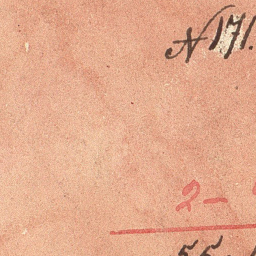 N 171.
2 –
55.